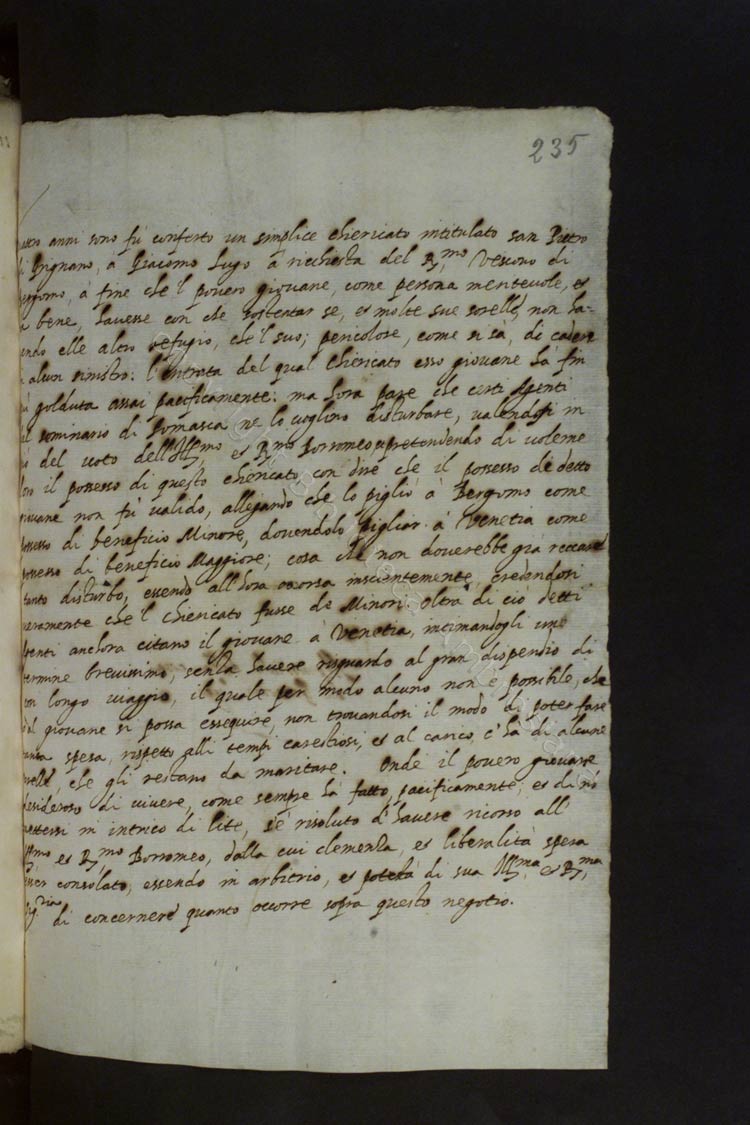 235
anni sono fù conferto un simplice chiericato intitulato san Pietro
di Brignano, à Giacomo Lugo, à richiesta del R.mo Vescovo di
Bergomo, à fine che 'l povero giovane, come persona meritevole, et
da bene, havesse con che sostentar se, et molte sue sorelle, non ha-
vendo elle altro refugio, che 'l suo; pericolose, come si sà, di cadere
in alcun sinistro: l'intrata del qual chiericato esso giovane hà fin
quì golduta assai pacificamente: ma hora pare che certi Agenti
del seminario di Comasca ne lo voglino disturbare, valendosi in
ciò del voto dell'Ill.mo et R.mo Borromeo, pretendendo di volerne
loro il possesso di questo chiericato, con dire che il possesso de detto
giovane non fù valido, allegando che lo pigliò à Bergomo come
possesso di beneficio Minore, dovendolo pigliar à Venetia come
possesso di beneficio Maggiore; cosa che non doverebbe già reccare
tanto disturbo, essendo all'hora occorsa inscientemente, credendosi
veramente che 'l chiericato fusse de Minori. Oltra di ciò detti
Agenti anchora citano il giovane à Venetia, intimandogli uno
termine brevissimo, senza havere risguardo al gran dispendio di
un longo viaggio, il quale per modo alcuno non è possibile, che
dal giovane si possa essequire, non trovandosi il modo di poter fare
tanta spesa, rispetto alli tempi carestiosi, et al carico c'hà di alcune
sorelle, che gli restano da maritare. Onde il povero giovane
desideroso di vivere, come sempre hà fatto, pacificamente, et di nõ
mettersi in intrico di lite, s'è risoluto d'havere ricorso all'
Ill.mo et R.mo Borromeo, dalla cui clemenza, et liberalità spera
esser consolato, essendo in arbitrio, et potestà di sua Ill.ma et R.ma
Sig.ria di concernere quanto occorre sopra questo negotio.